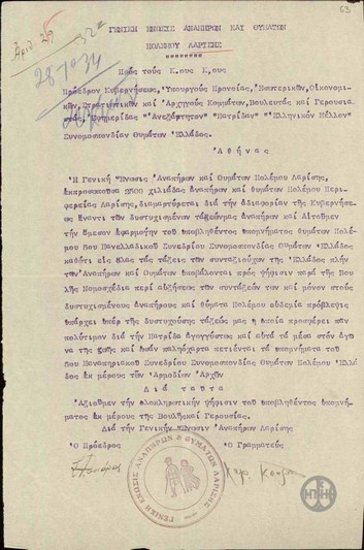 63
ΓΕΝΙΚΗ ΕΝΩΣΙΣ ΑΝΑΠΗΡΩΝ ΚΑΙ ΘΥΜΑΤΩΝ
ΠΟΛΕΜΟΥ ΛΑΡΙΣΗΣ
Πρός τούς Κ.ους Κ.ους
Πρόεδρον Κυβερνήσεως, Ύπουργούς Προνοίας, Έσωτερικών, Οίκονομι-
κών, Στρατιωτικών καί Άρχηγούς Κομμάτων, Βουλευτάς καί Γερουσια-
στάς, Έφημερίδας "Άνεξάρτητον" "Πατρίδαν" "Έλληνικόν Μέλλον"
Συνομοσπονδίαν Θυμάτων Έλλάδος.
Ά θ ή ν α ς
Ή Γενική Ένωσις Άναπήρων καί Θυμάτων Πολέμου Λαρίσης,
έκπροσωπούσα 3500 χιλιάδας άναπήρων καί θυμάτων Πολέμου Περι-
φερείας Λαρίσης, διαμαρτύρεται διά τήν άδιαφορίαν τής Κυβερνή-
σεως έναντι τών δυστυχισμένων τάξεων μας Άναπήρων καί Αίτούμεν
τήν άμεσον έφαρμογήν τού ύποβληθέντος ύπομνήματος θυμάτων Πολέ-
μου 5ου Πανελλαδικού Συνεδρίου Συνομοσπονδίας Θυμάτων Έλλάδος
καθότι είς όλας τάς τάξεις τών συνταξιούχων τής Έλλάδος πλήν
τών Άναπήρων καί Θυμάτων ύποβάλονται πρός ψήφισιν παρά τής Βου-
λής Νομοσχέδια περί αύξήσεως τών συντάξεών των καί μόνον στούς
δυστυχισμένους Άναπήρους καί θύματα Πολέμου ούδεμία πρόβλεψις
ύπάρχει ύπέρ τής δυστυχούσης τάξεώς μας ή όποία προσφέρει πάν
πολύτιμον διά τήν Πατρίδα άγογγύστως καί αύτό τό μέσον στόν άγώ
να τής ζωής καί πετιένται τά ύπομνήματα τού
5ου Παναναπηρικού Συνεδρίου Συνομοσπονδίας Θυμάτων Πολέμου Έλλά
δος έκ μέρους τών Άρμοδίων Άρχών
Δ ι ά τ α ύ τ α
Άξιούμεν τήν όλοκληρωτικήν ψήφισιν τού ύποβληθέντος ύπομνή-
ματος έκ μέρους τής Βουλής καί Γερουσίας.
Διά τήν Γενικήν Ένωσιν Άναπήρων Λαρίσης
Ό Πρόεδρος Ό Γραμματεύς
ΓΕΝΙΚΗ ΕΝΩΣΙΣ ΑΝΑΠΗΡΩΝ & ΘΥΜΑΤΩΝ ΛΑΡΙΣΗΣ